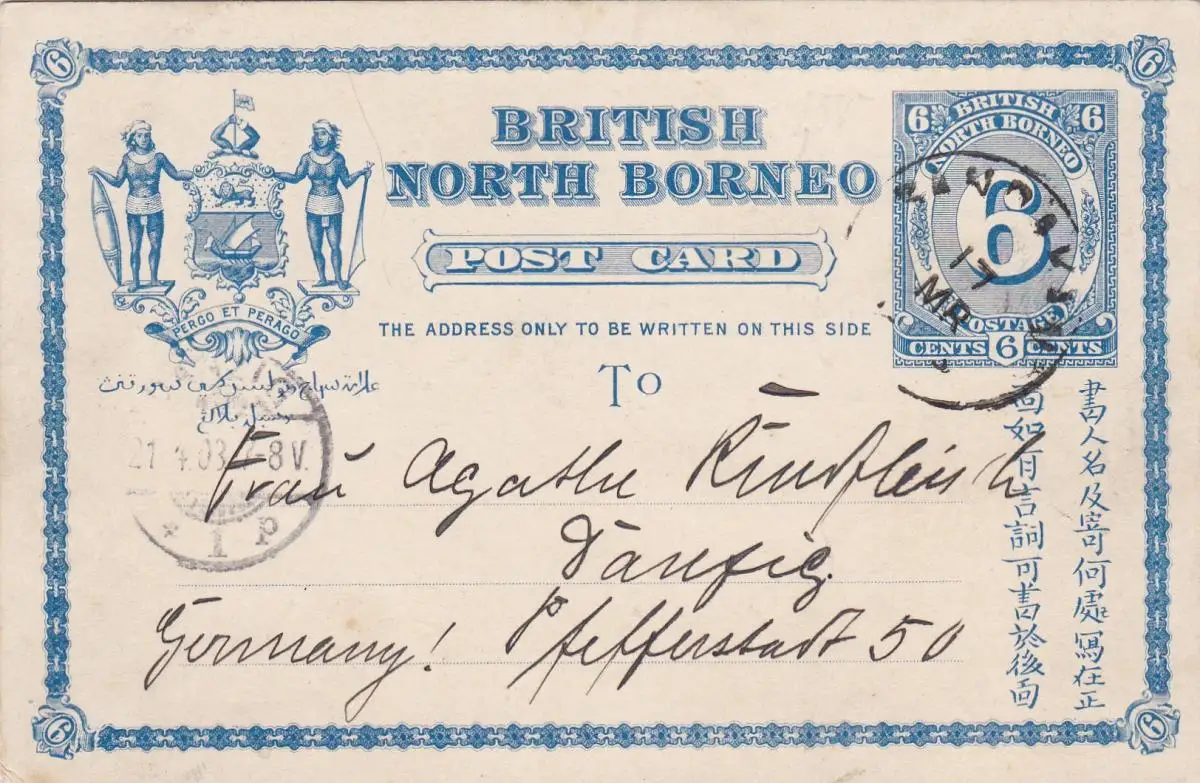 BRITISH
NORTH BORNEO
POST CARD
THE ADDRESS ONLY TO BE WRITTEN ON THIS SIDE
To
PERGO ET PERAGO
6
6
6
6
6 6
BRITISH
NORTH BORNEO
6
POSTAGE
CENTS 6 CENTS
17
MR
21 4 03 7-8V.
* 1 p
Frau Agathe Rindfleisch
Danzig.
Germany! Pfefferstadt 50
書人名及寄何處寫在正
面如有言詞可書於後面